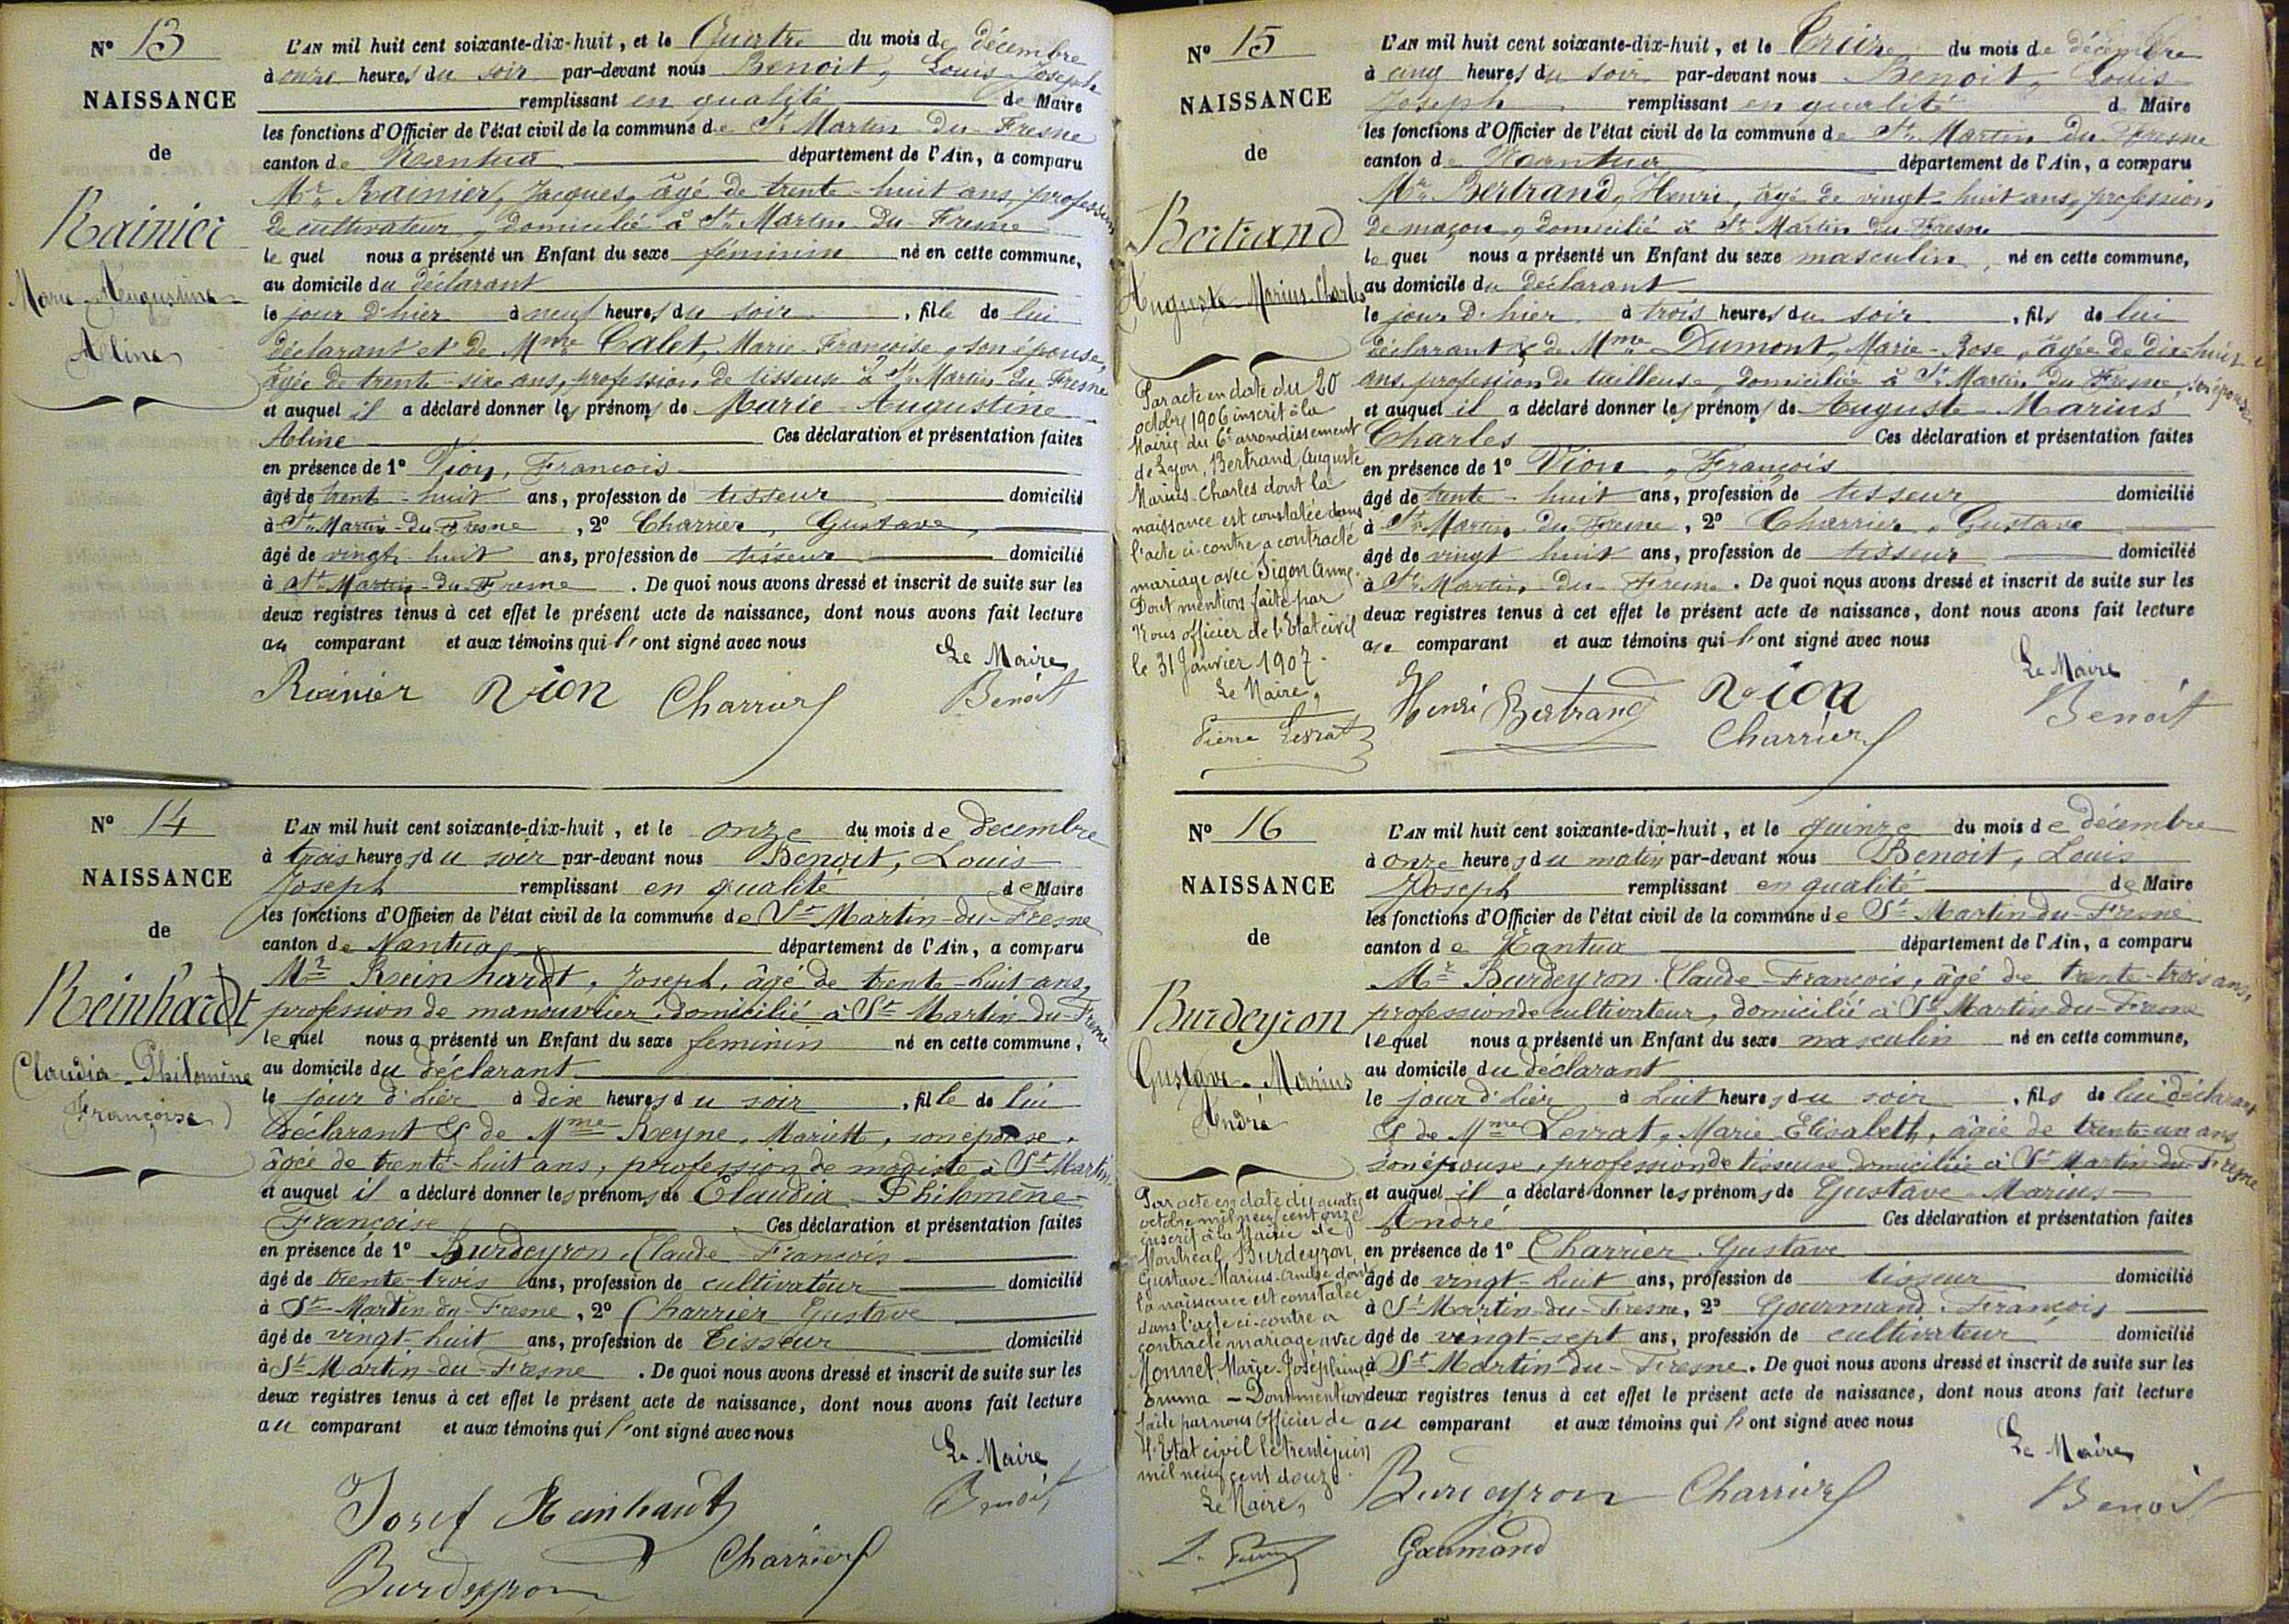 N° 13
NAISSANCE
de
Rainier
Marie-Augustine-
Aline
L'AN mil huit cent soixante-dix-huit, et le Quatre du mois de décembre
à onze heures du soir par-devant nous Benoit, Louis Joseph
remplissant en qualité de Maire
les fonctions d'Officier de l'état civil de la commune de St Martin-du-Fresne
canton de Nantua département de l'Ain, a comparu
Mr Rainier, Jacques, âgé de trente-huit ans, profession
de cultivateur, domicilié à St Martin-du-Fresne
le quel nous a présenté un Enfant du sexe féminin né en cette commune,
au domicile du déclarant
le jour d'hier à neuf heures du soir, fille de lui
déclarant et de Mme Calet, Marie-Françoise, son épouse,
âgée de trente-six ans, profession de tisseuse à St Martin du Fresne
et auquel il a déclaré donner les prénoms de Marie-Augustine
Aline Ces déclaration et présentation faites
en présence de 1° Vion, François
âgé de trente-huit ans, profession de tisseur domicilié
à St Martin-du-Fresne, 2° Charrier, Gustave,
âgé de vingt-huit ans, profession de tisseur domicilié
à St Martin-du-Fresne. De quoi nous avons dressé et inscrit de suite sur les
deux registres tenus à cet effet le présent acte de naissance, dont nous avons fait lecture
au comparant et aux témoins qui l'ont signé avec nous
Le Maire
Rainier Vion Charrier Benoit
N° 14
NAISSANCE
de
Reinhardt
(Claudia-Philomène
Françoise)
L'AN mil huit cent soixante-dix-huit, et le onze du mois de décembre
à trois heures du soir par-devant nous Benoit, Louis
Joseph remplissant en qualité de Maire
les fonctions d'Officier de l'état civil de la commune de St Martin-du-Fresne
canton de Nantua département de l'Ain, a comparu
Mr Reinhardt, Joseph, âgé de trente-huit ans,
profession de manouvrier, domicilié à St Martin-du-Fresne
le quel nous a présenté un Enfant du sexe féminin né en cette commune,
au domicile du déclarant
le jour d'hier à dix heures du soir, fille de lui
déclarant & de Mme Reyne, Mariette, son épouse,
âgée de trente-huit ans, profession de modiste à St Martin
et auquel il a déclaré donner les prénoms de Claudia-Philomène-
Françoise Ces déclaration et présentation faites
en présence de 1° Burdeyron, Claude François
âgé de trente-trois ans, profession de cultivateur domicilié
à St Martin-du-Fresne, 2° Charrier Gustave
âgé de vingt-huit ans, profession de Tisseur domicilié
à St Martin-du-Fresne. De quoi nous avons dressé et inscrit de suite sur les
deux registres tenus à cet effet le présent acte de naissance, dont nous avons fait lecture
au comparant et aux témoins qui l'ont signé avec nous
Le Maire
Josef Reinhardt Benoit
Burdeyron Charrier
N° 15
NAISSANCE
de
Bertrand
Auguste-Marius-Charles
Par acte en date du 20
octobre 1906 inscrit à la
Mairie du 6e arrondissement
de Lyon, Bertrand, Auguste
Marius-Charles dont la
naissance est constatée dans
l'acte ci-contre a contracté
mariage avec Sigon Anne.
Dont mention faite par
Nous officier de l'Etat civil
le 31 Janvier 1907.
Le Maire,
Pierre Levrat
L'AN mil huit cent soixante-dix-huit, et le Treize du mois de décembre
à cinq heures du soir par-devant nous Benoit, Louis
Joseph remplissant en qualité de Maire
les fonctions d'Officier de l'état civil de la commune de St Martin du Fresne
canton de Nantua département de l'Ain, a comparu
Mr Bertrand, Henri, âgé de vingt-huit ans, profession
de maçon, domicilié à St Martin du Fresne
le quel nous a présenté un Enfant du sexe masculin, né en cette commune,
au domicile du déclarant
le jour d'hier à trois heures du soir, fils de lui
déclarant & de Mme Dumont, Marie-Rose, âgée de dix-huit
ans, profession de tailleuse, domiciliée à St Martin du Fresne, son épouse
et auquel il a déclaré donner les prénoms de Auguste-Marius
Charles Ces déclaration et présentation faites
en présence de 1° Vion, François
âgé de trente-huit ans, profession de tisseur domicilié
à St Martin du Fresne, 2° Charrier, Gustave
âgé de vingt huit ans, profession de tisseur domicilié
à St Martin-du-Fresne. De quoi nous avons dressé et inscrit de suite sur les
deux registres tenus à cet effet le présent acte de naissance, dont nous avons fait lecture
au comparant et aux témoins qui l'ont signé avec nous
Le Maire
Henri Bertrand Vion Benoit
Charrier
N° 16
NAISSANCE
de
Burdeyron
Gustave-Marius
André
Par acte en date du quatre
octobre mil neuf cent onze
inscrit à la Mairie de
Montréal, Burdeyron,
Gustave-Marius-André dont
la naissance est constatée
dans l'acte ci-contre a
contracté mariage avec
Monnet Marie-Joséphine
Emma - Dont mention
faite par nous Officier de
l'Etat civil le trente juin
mil neuf cent douze.
Le Maire,
L'AN mil huit cent soixante-dix-huit, et le quinze du mois de décembre
à onze heures du matin par-devant nous Benoit, Louis
Joseph remplissant en qualité de Maire
les fonctions d'Officier de l'état civil de la commune de St Martin du-Fresne
canton de Nantua département de l'Ain, a comparu
Mr Burdeyron Claude-François, âgé de trente-trois ans,
profession de cultivateur, domicilié à St Martin du-Fresne
le quel nous a présenté un Enfant du sexe masculin né en cette commune,
au domicile du déclarant
le jour d'hier à huit heures du soir, fils de lui déclarant
& de Mme Levrat, Marie Elisabeth, âgée de trente-un ans
son épouse, profession de tisseuse domiciliée à St Martin-du-Fresne
et auquel il a déclaré donner les prénoms de Gustave-Marius-
André Ces déclaration et présentation faites
en présence de 1° Charrier Gustave
âgé de vingt-huit ans, profession de tisseur domicilié
à St Martin-du-Fresne, 2° Gourmand, François
âgé de vingt-sept ans, profession de cultivateur domicilié
à St Martin-du-Fresne. De quoi nous avons dressé et inscrit de suite sur les
deux registres tenus à cet effet le présent acte de naissance, dont nous avons fait lecture
au comparant et aux témoins qui l'ont signé avec nous
Le Maire
Burdeyron Charrier Benoit
Gourmand